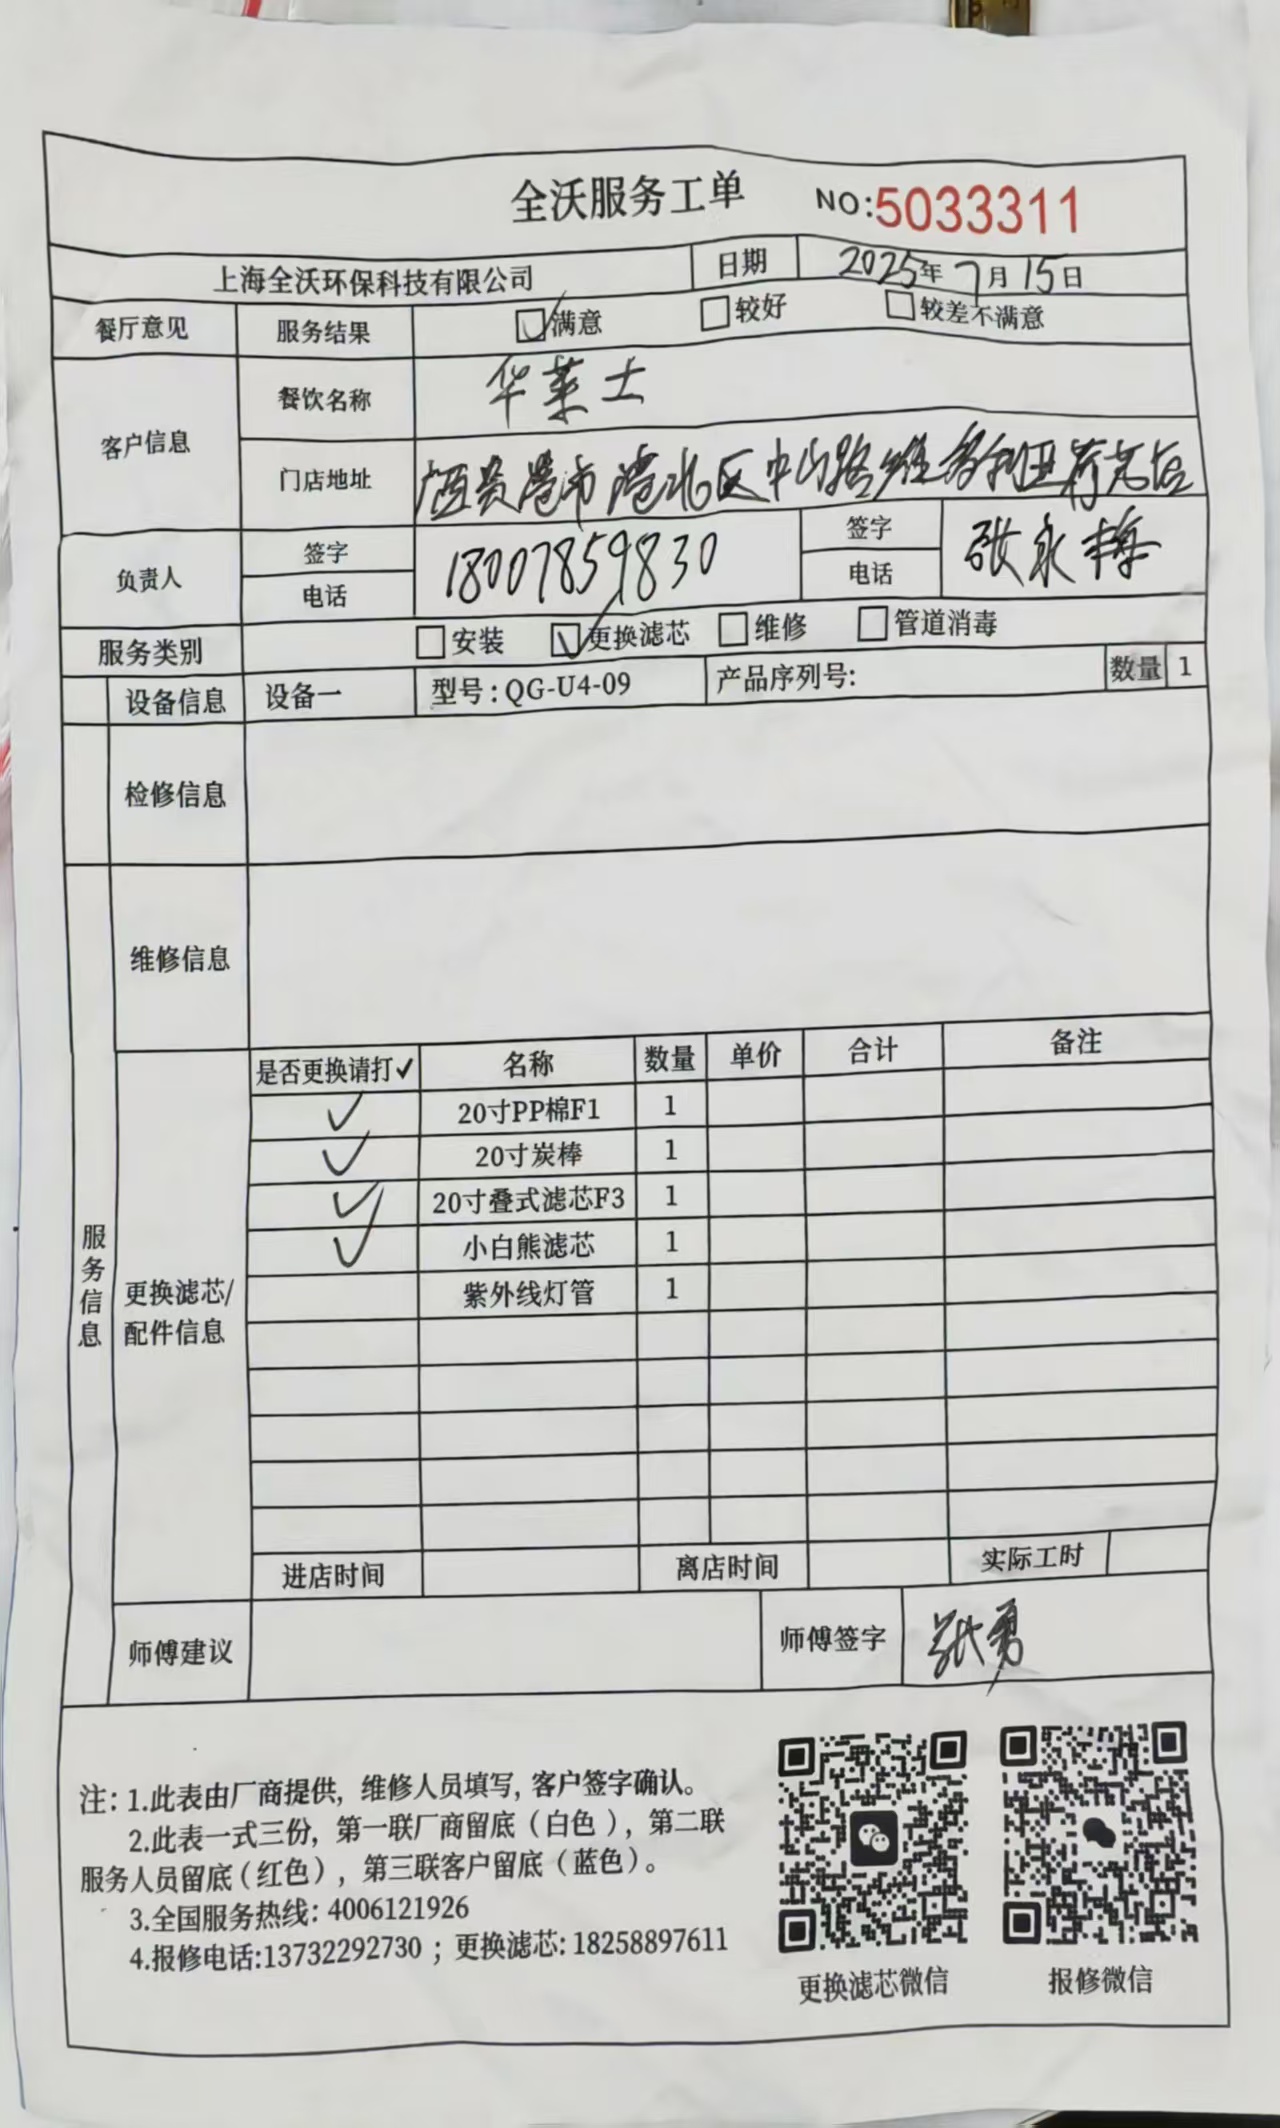 全沃服务工单 NO:5033311
上海全沃环保科技有限公司 日期 2025年7月15日
餐厅意见 服务结果 满意 较好 较差不满意
客户信息 餐饮名称 华莱士
门店地址 广西贵港市港北区中山路维多利亚荷花店
负责人 签字 18007859830 签字 张永梅
电话 电话
服务类别 安装 更换滤芯 维修 管道消毒
设备信息 设备一 型号:QG-U4-09 产品序列号: 数量 1
检修信息
维修信息
服务信息
更换滤芯/配件信息
是否更换请打✓ 名称 数量 单价 合计 备注
✓ 20寸PP棉F1 1
✓ 20寸炭棒 1
✓ 20寸叠式滤芯F3 1
✓ 小白熊滤芯 1
紫外线灯管 1
进店时间 离店时间 实际工时
师傅建议 师傅签字 张勇
注: 1.此表由厂商提供, 维修人员填写, 客户签字确认。
2.此表一式三份, 第一联厂商留底(白色), 第二联
服务人员留底(红色), 第三联客户留底(蓝色)。
3.全国服务热线: 4006121926
4.报修电话:13732292730 ; 更换滤芯: 18258897611
更换滤芯微信 报修微信